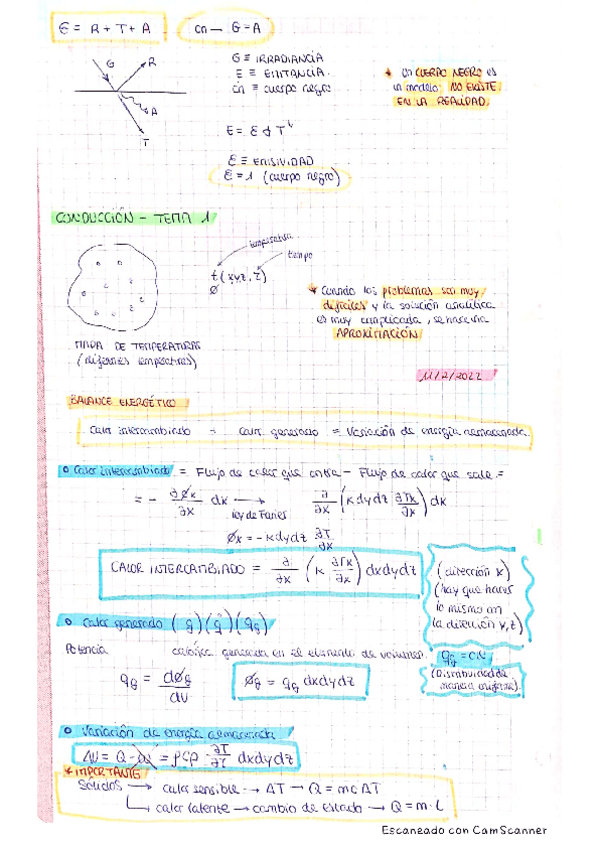 E = R + T + A   cn → G = A
G ≡ IRRADIANCIA
E ≡ EMITANCIA.
cn ≡ cuerpo negro
G R A T
* Un CUERPO NEGRO es
un modelo. NO EXISTE
EN LA REALIDAD.
E ≡ EMISIVIDAD
E = 1 (cuerpo negro)
CONDUCCIÓN - TEMA 1
temperatura
tiempo
MAPA DE TEMPERATURAS
(diferentes temperaturas)
* Cuando los problemas son muy
difíciles y la solución analítica
es muy complicada, se hace una
APROXIMACIÓN
11/2/2022
BALANCE ENERGÉTICO
Calor intercambiado = Calor generado = Variación de energía almacenada
Calor intercambiado = Flujo de calor que entra - Flujo de calor que sale =
= - ∂Øx/∂x dx → ∂/∂x (K dydz ∂Tx/∂x) dx
Øx = -K dydz ∂T/∂x
CALOR INTERCAMBIADO = ∂/∂x (K ∂Tx/∂x) dxdydz
(dirección x)
(hay que hacer
lo mismo en
la dirección y,z)
Calor generado
Potencia calorífica generada en el elemento de volumen.
qg = dØg/dV
Øg = qg dxdydz
(Distribuidad de
manera uniforme).
Variación de energía almacenada
= ρcp ∂T/∂τ dxdydz
* IMPORTANTE
Sólidos → calor sensible → ΔT → Q = mcΔT
→ calor latente → cambio de estado → Q = m·L
Escaneado con CamScanner